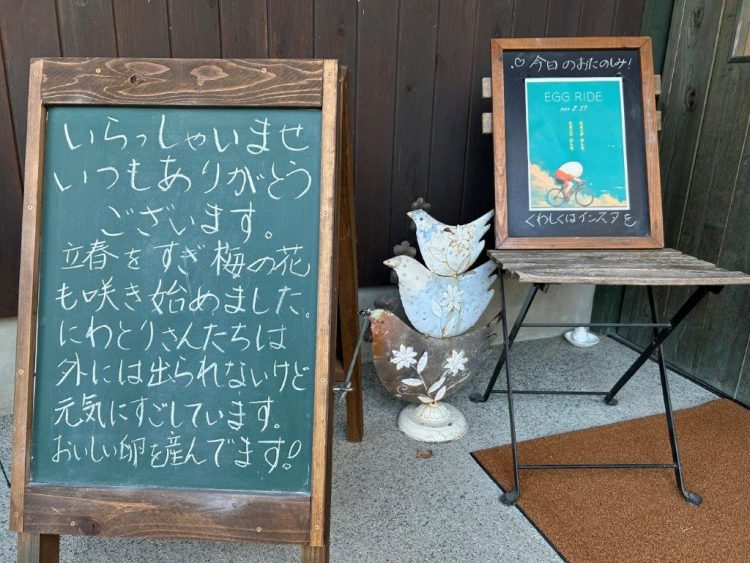 いらっしゃいませ
いつもありがとう
ございます。
立春をすぎ梅の花
も咲き始めました。
にわとりさんたちは
外には出られないけど
元気にすごしています。
おいしい卵を産んでます!
♡今日のおたのしみ!
EGG RIDE
くわしくはインスタを